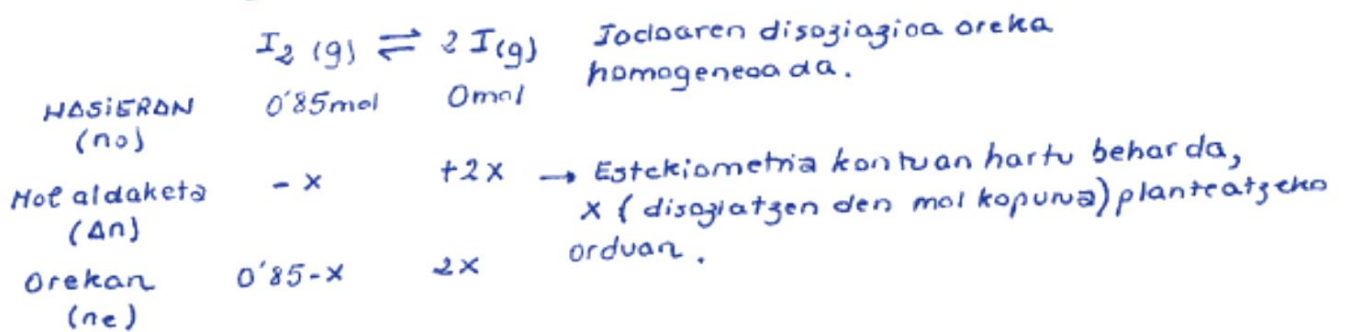 I₂ (g) ⇌ 2 I(g) Jodoaren disoziazioa oreka
homogeneoa da.
HASIERAN 0'85mol 0mol
(no)
Mol aldaketa - x +2x → Estekiometria kontuan hartu behar da,
(Δn) x (disoziatzen den mol kopurua) planteatzeko
orduan.
Orekan 0'85-x 2x
(ne)